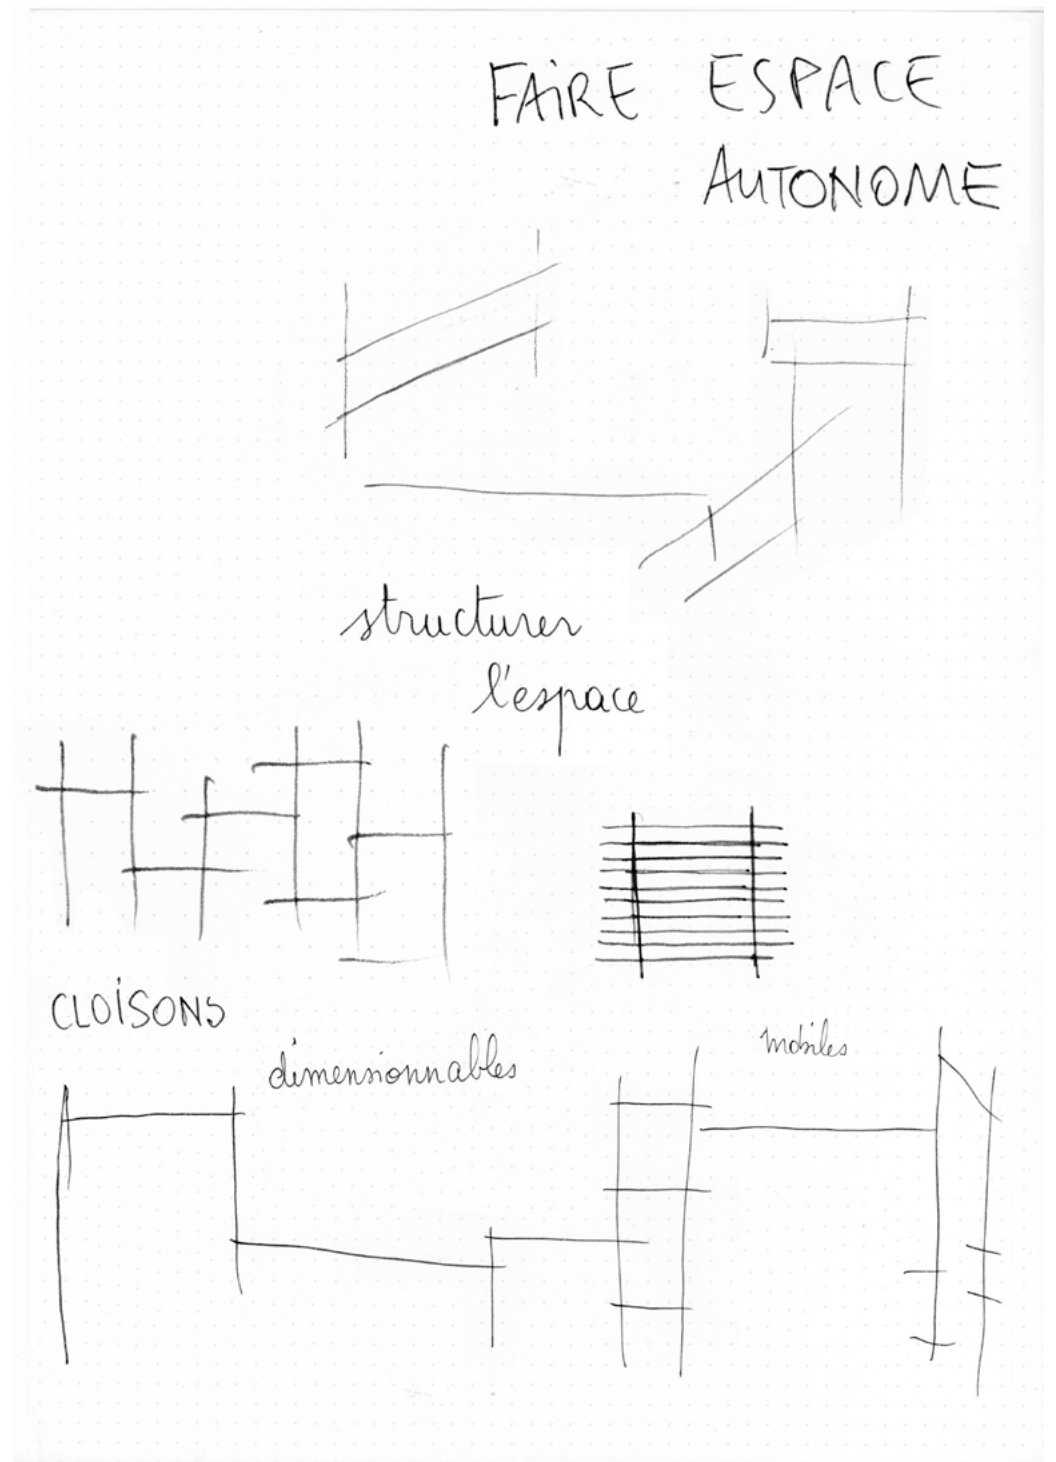 FAiRE ESPACE
AUTONOME
structurer
l'espace
CLOiSONS
dimensionnables
mobiles